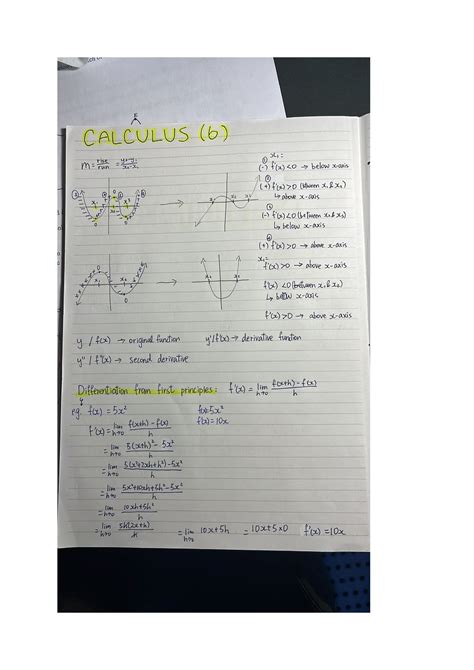 CALCULUS (6)
m = rise/run = y₂-y₁/x₂-x₁
x₁:
① (-) f'(x) < 0 → below x-axis
② (+) f'(x) > 0 (between x₁ & x₂)
↳ above x-axis
(-) f'(x) < 0 (between x₂ & x₃)
↳ below x-axis
④ (+) f'(x) > 0 → above x-axis
f'(x) > 0 → above x-axis
f'(x) < 0 (between x₁ & x₂)
↳ below x-axis
f'(x) > 0 → above x-axis
y / f(x) → original function y'/f'(x) → derivative function
y'' / f''(x) → second derivative
Differentiation from first principles: f'(x) = lim h→0 f(x+h) - f(x) / h
eg. f(x) = 5x² f(x) = 5x²
f'(x) = lim h→0 f(x+h) - f(x) / h f'(x) = 10x
= lim h→0 5(x+h)² - 5x² / h
= lim h→0 5(x²+2xh+h²) - 5x² / h
= lim h→0 5x²+10xh+5h²-5x² / h
= lim h→0 10xh+5h² / h
= lim h→0 5h(2x+h) / h = lim h→0 10x+5h = 10x+5×0 f'(x) = 10x